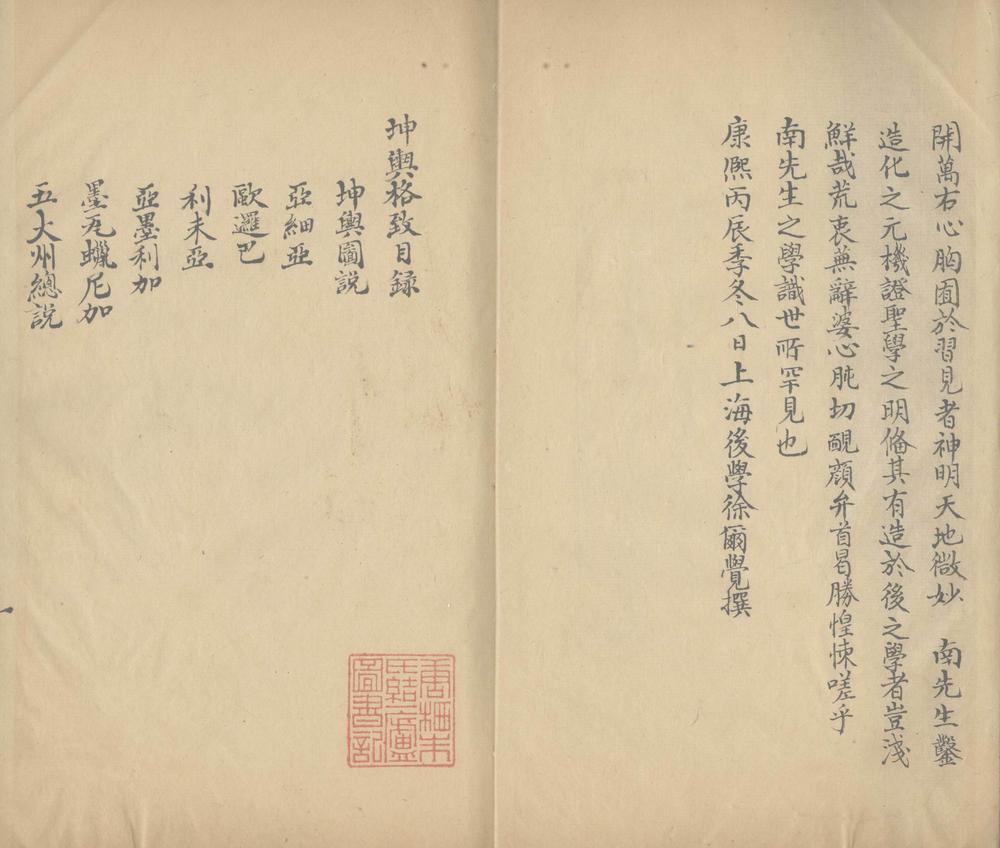 開萬右心胸囿於習見者神明天地微妙　南先生鑿
造化之元機證聖學之明脩其有造於後之學者豈淺
鮮哉荒衷蕪辭婆心肫切靦顏弁首曷勝惶悚嗟乎
南先生之學識世所罕見也
康熙丙辰季冬八日上海後學徐爾覺撰
坤輿格致目録
坤輿圖説
亞細亞
歐邏巴
利未亞
亞墨利加
墨瓦蠟尼加
五大州總説
唐栖朱
氏結一廬
圖書記